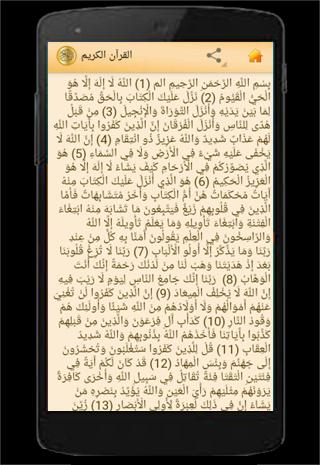 القرآن الكريم
بِسْمِ اللَّهِ الرَّحْمَنِ الرَّحِيمِ الم (1) اللَّهُ لَا إِلَهَ إِلَّا هُوَ
الْحَيُّ الْقَيُّومُ (2) نَزَّلَ عَلَيْكَ الْكِتَابَ بِالْحَقِّ مُصَدِّقًا
لِمَا بَيْنَ يَدَيْهِ وَأَنْزَلَ التَّوْرَاةَ وَالْإِنْجِيلَ (3) مِنْ قَبْلُ
هُدًى لِلنَّاسِ وَأَنْزَلَ الْفُرْقَانَ إِنَّ الَّذِينَ كَفَرُوا بِآيَاتِ اللَّهِ
لَهُمْ عَذَابٌ شَدِيدٌ وَاللَّهُ عَزِيزٌ ذُو انْتِقَامٍ (4) إِنَّ اللَّهَ لَا
يَخْفَى عَلَيْهِ شَيْءٌ فِي الْأَرْضِ وَلَا فِي السَّمَاءِ (5) هُوَ
الَّذِي يُصَوِّرُكُمْ فِي الْأَرْحَامِ كَيْفَ يَشَاءُ لَا إِلَهَ إِلَّا هُوَ
الْعَزِيزُ الْحَكِيمُ (6) هُوَ الَّذِي أَنْزَلَ عَلَيْكَ الْكِتَابَ مِنْهُ
آيَاتٌ مُحْكَمَاتٌ هُنَّ أُمُّ الْكِتَابِ وَأُخَرُ مُتَشَابِهَاتٌ فَأَمَّا
الَّذِينَ فِي قُلُوبِهِمْ زَيْغٌ فَيَتَّبِعُونَ مَا تَشَابَهَ مِنْهُ ابْتِغَاءَ
الْفِتْنَةِ وَابْتِغَاءَ تَأْوِيلِهِ وَمَا يَعْلَمُ تَأْوِيلَهُ إِلَّا اللَّهُ
وَالرَّاسِخُونَ فِي الْعِلْمِ يَقُولُونَ آمَنَّا بِهِ كُلٌّ مِنْ عِنْدِ
رَبِّنَا وَمَا يَذَّكَّرُ إِلَّا أُولُو الْأَلْبَابِ (7) رَبَّنَا لَا تُزِغْ قُلُوبَنَا
بَعْدَ إِذْ هَدَيْتَنَا وَهَبْ لَنَا مِنْ لَدُنْكَ رَحْمَةً إِنَّكَ أَنْتَ
الْوَهَّابُ (8) رَبَّنَا إِنَّكَ جَامِعُ النَّاسِ لِيَوْمٍ لَا رَيْبَ فِيهِ
إِنَّ اللَّهَ لَا يُخْلِفُ الْمِيعَادَ (9) إِنَّ الَّذِينَ كَفَرُوا لَنْ تُغْنِيَ
عَنْهُمْ أَمْوَالُهُمْ وَلَا أَوْلَادُهُمْ مِنَ اللَّهِ شَيْئًا وَأُولَئِكَ هُمْ
وَقُودُ النَّارِ (10) كَدَأْبِ آلِ فِرْعَوْنَ وَالَّذِينَ مِنْ قَبْلِهِمْ
كَذَّبُوا بِآيَاتِنَا فَأَخَذَهُمُ اللَّهُ بِذُنُوبِهِمْ وَاللَّهُ شَدِيدُ
الْعِقَابِ (11) قُلْ لِلَّذِينَ كَفَرُوا سَتُغْلَبُونَ وَتُحْشَرُونَ
إِلَى جَهَنَّمَ وَبِئْسَ الْمِهَادُ (12) قَدْ كَانَ لَكُمْ آيَةٌ فِي
فِئَتَيْنِ الْتَقَتَا فِئَةٌ تُقَاتِلُ فِي سَبِيلِ اللَّهِ وَأُخْرَى كَافِرَةٌ
يَرَوْنَهُمْ مِثْلَيْهِمْ رَأْيَ الْعَيْنِ وَاللَّهُ يُؤَيِّدُ بِنَصْرِهِ مَنْ
يَشَاءُ إِنَّ فِي ذَلِكَ لَعِبْرَةً لِأُولِي الْأَبْصَارِ (13) زُيِّنَ